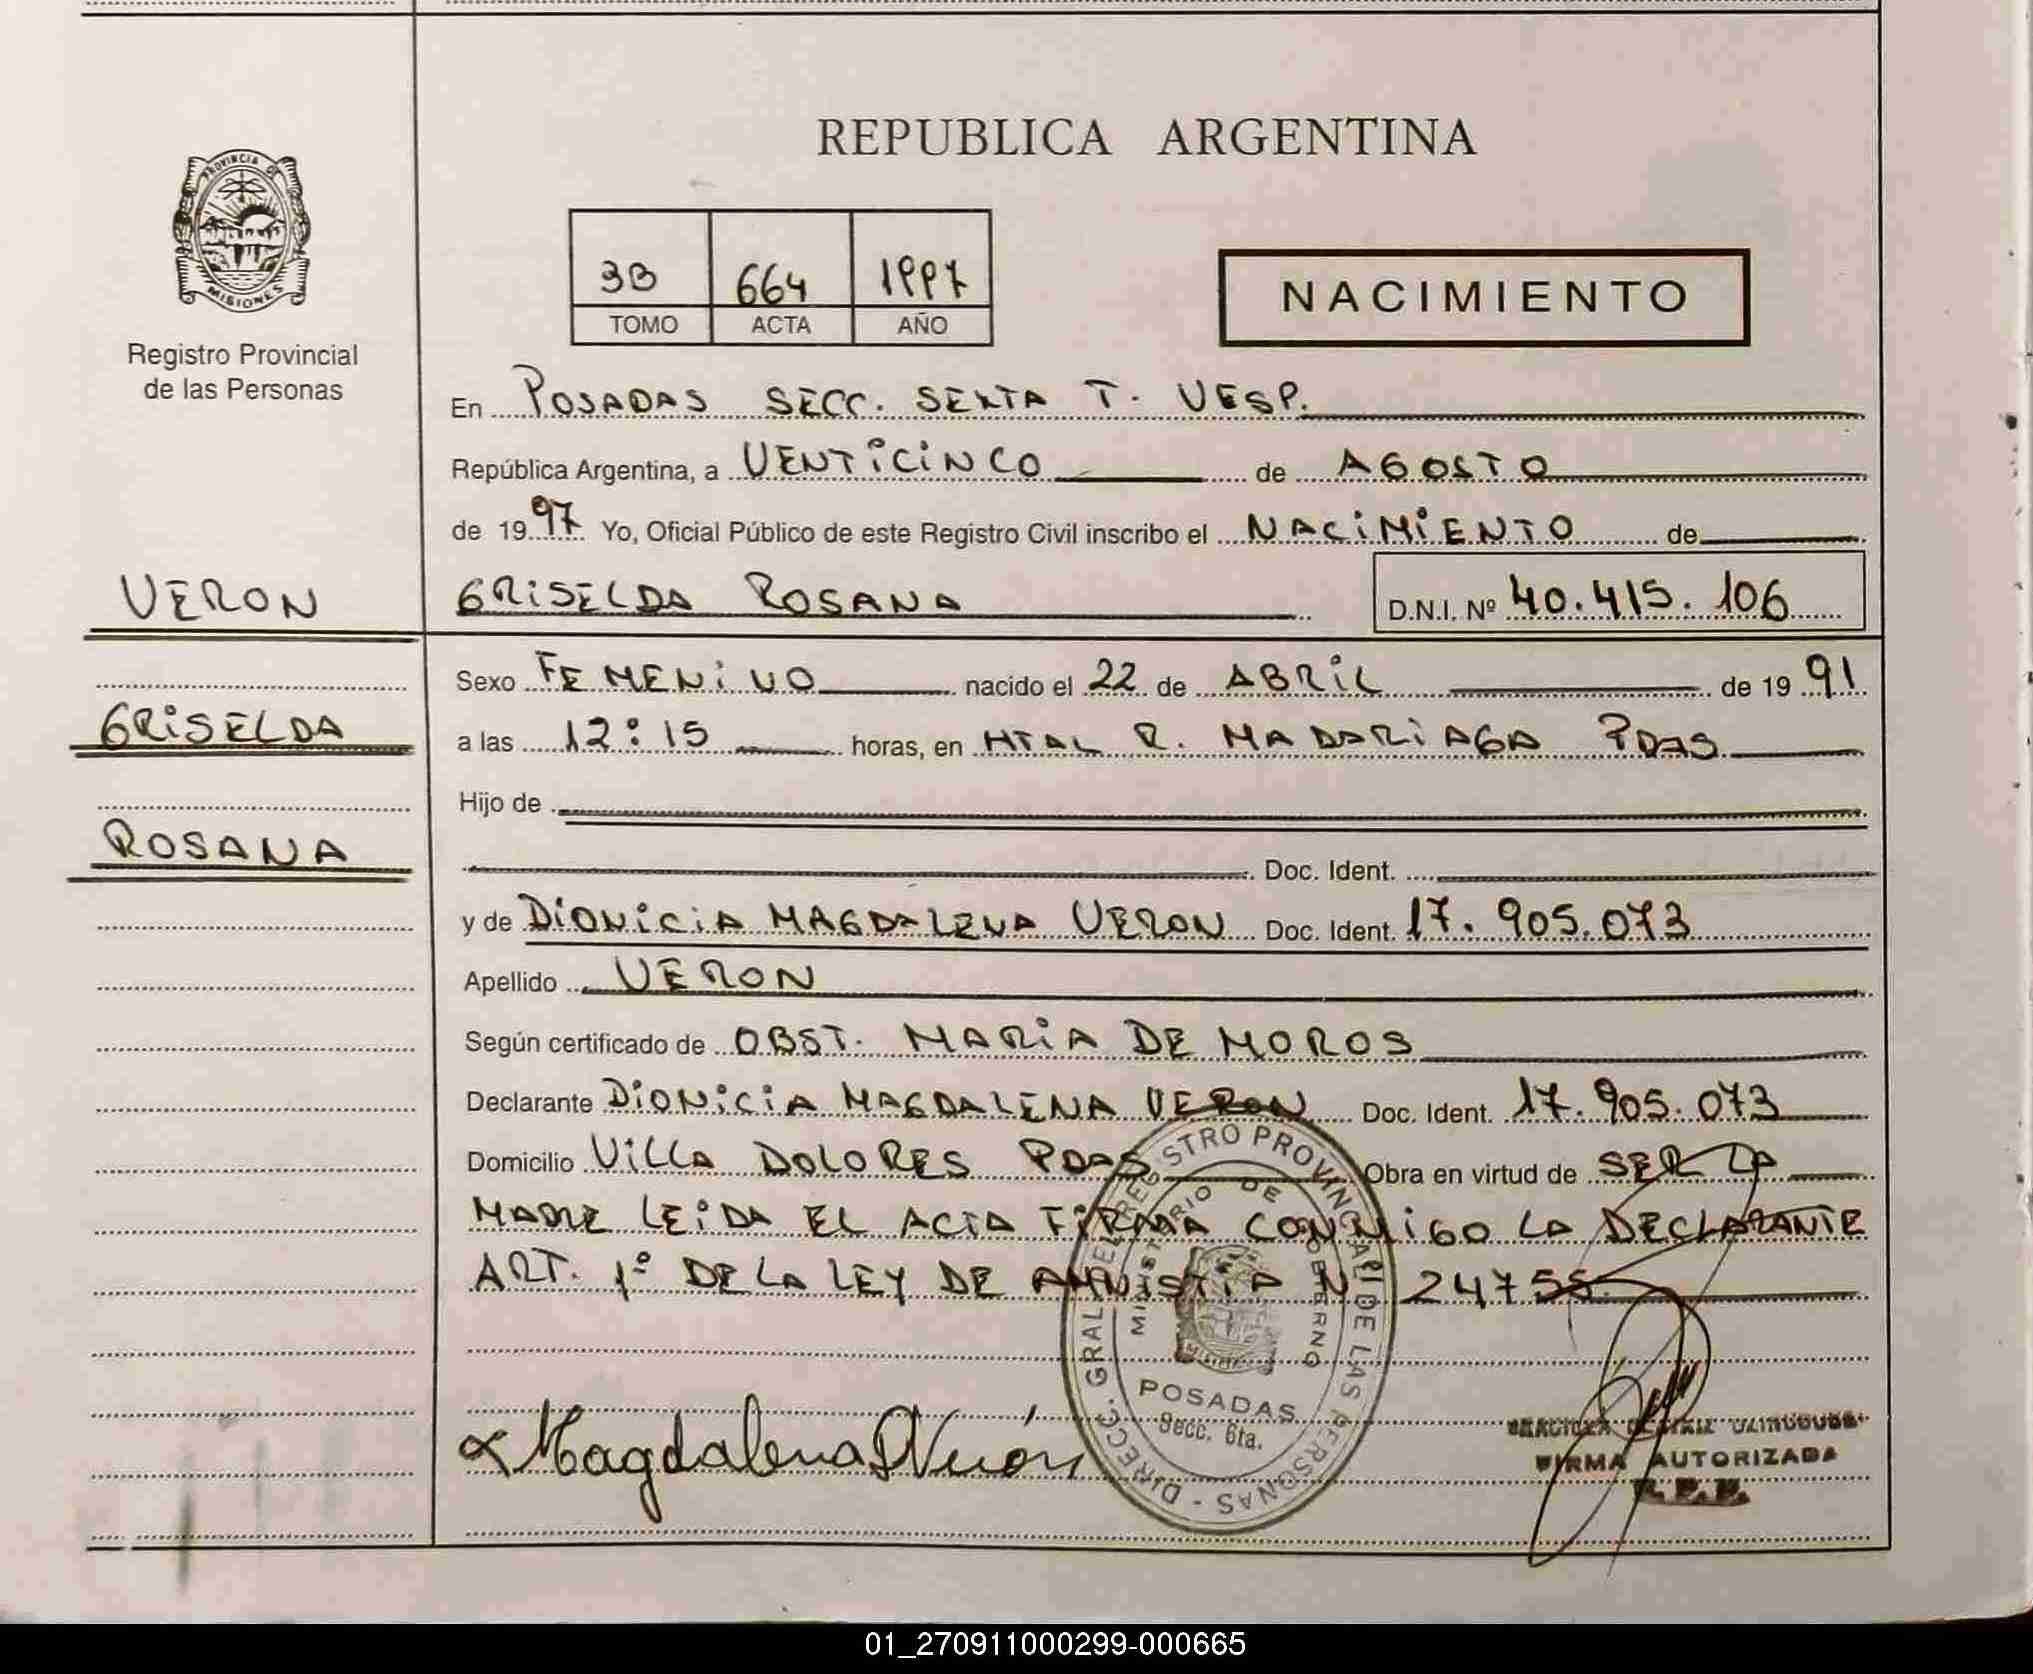 REPUBLICA ARGENTINA
PROVINCIA DE
MISIONES
Registro Provincial
de las Personas
3B 664 1997
TOMO ACTA AÑO
NACIMIENTO
En POSADAS SECC. SEXTA T. VESP.
República Argentina, a VENTICINCO de AGOSTO
de 1997 Yo, Oficial Público de este Registro Civil inscribo el NACIMIENTO de
VERON
GRISELDA ROSANA D.N.I. Nº 40.415.106
Sexo FEMENINO nacido el 22 de ABRIL de 1991
GRISELDA
a las 12:15 horas, en HTAL R. MADARIAGA PDAS
Hijo de
ROSANA
Doc. Ident.
y de DIONICIA MAGDALENA VERON Doc. Ident. 17.905.073
Apellido VERON
Según certificado de OBST. MARIA DE MOROS
Declarante DIONICIA MAGDALENA VERON Doc. Ident. 17.905.073
Domicilio VILLA DOLORES PDAS Obra en virtud de SER LA
MADRE LEIDA EL ACTA FIRMA CONMIGO LA DECLARANTE
ART. 1º DE LA LEY DE AMNISTIA Nº 24755
DIRECC. GRAL. DEL REGISTRO PROVINCIAL DE LAS PERSONAS -
MINISTERIO DE GOBIERNO
POSADAS
Secc. 6ta.
Magdalena D Verón
FIRMA AUTORIZADA
01_270911000299-000665